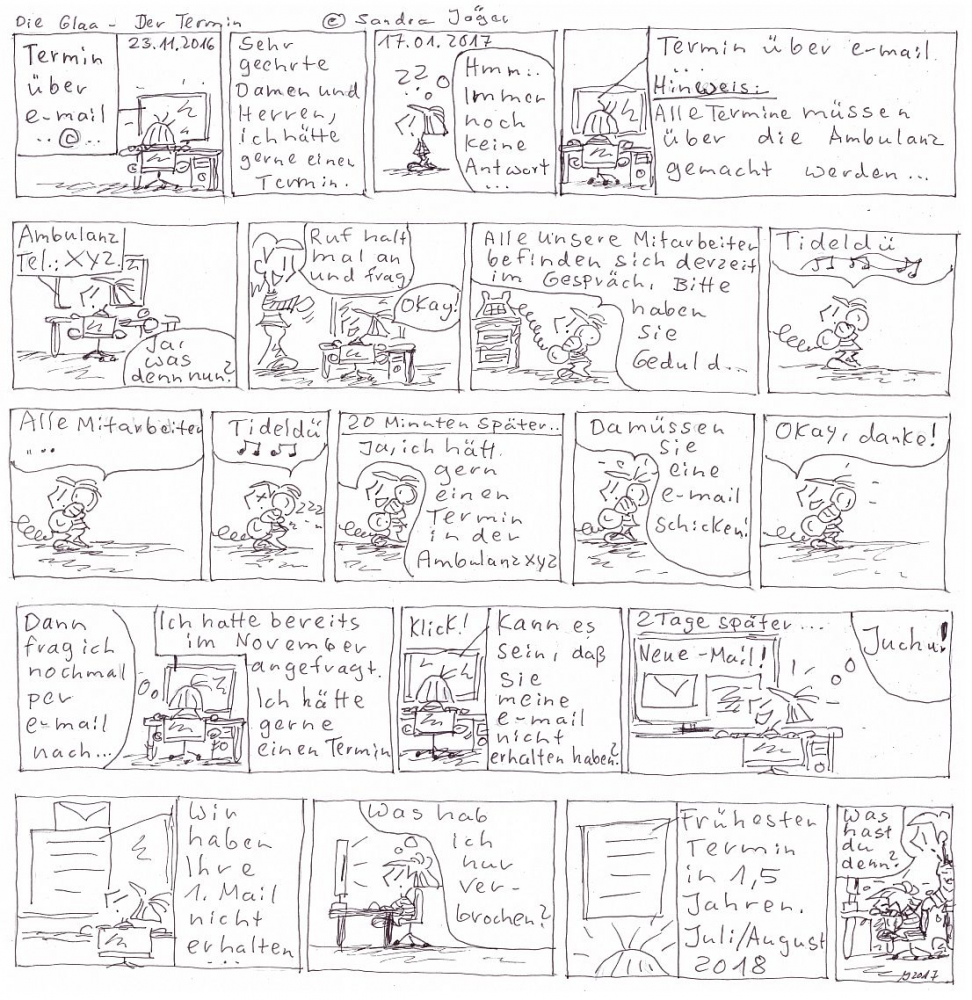 Die Glaa - Der Termin © Sandra Jäger
Termin
über
e-mail
..@...
23.11.2016
Sehr
geehrte
Damen und
Herren,
ich hätte
gerne einen
Termin.
17.01.2017
ZZ
Hmm..
Immer
noch
keine
Antwort
...
Termin über e-mail
...
Hinweis:
Alle Termine müssen
über die Ambulanz
gemacht werden...
Ambulanz
Tel.: XYZ.
Ja,
was
denn nun?
Ruf halt
mal an
und frag.
Okay!
Alle unsere Mitarbeiter
befinden sich derzeit
im Gespräch. Bitte
haben
sie
Geduld...
Tideldü
Alle Mitarbeiter
...
Tideldü
zzz
20 Minuten später..
Ja, ich hätt.
gern
einen
Termin
in der
Ambulanz xyz
Da müssen
sie
eine
e-mail
schicken!
Okay, danke!
Dann
frag ich
nochmal
per
e-mail
nach...
Ich hatte bereits
im November
angefragt.
Ich hätte
gerne
einen Termin
Klick!
Kann es
sein, daß
sie
meine
e-mail
nicht
erhalten haben?
2 Tage später...
Neue-Mail!
Juchu!
Wir
haben
Ihre
1. Mail
nicht
erhalten
...
Was hab
ich
nur
ver-
brochen?
Frühester
Termin
in 1,5
Jahren.
Juli/August
2018
Was
hast
du
denn?